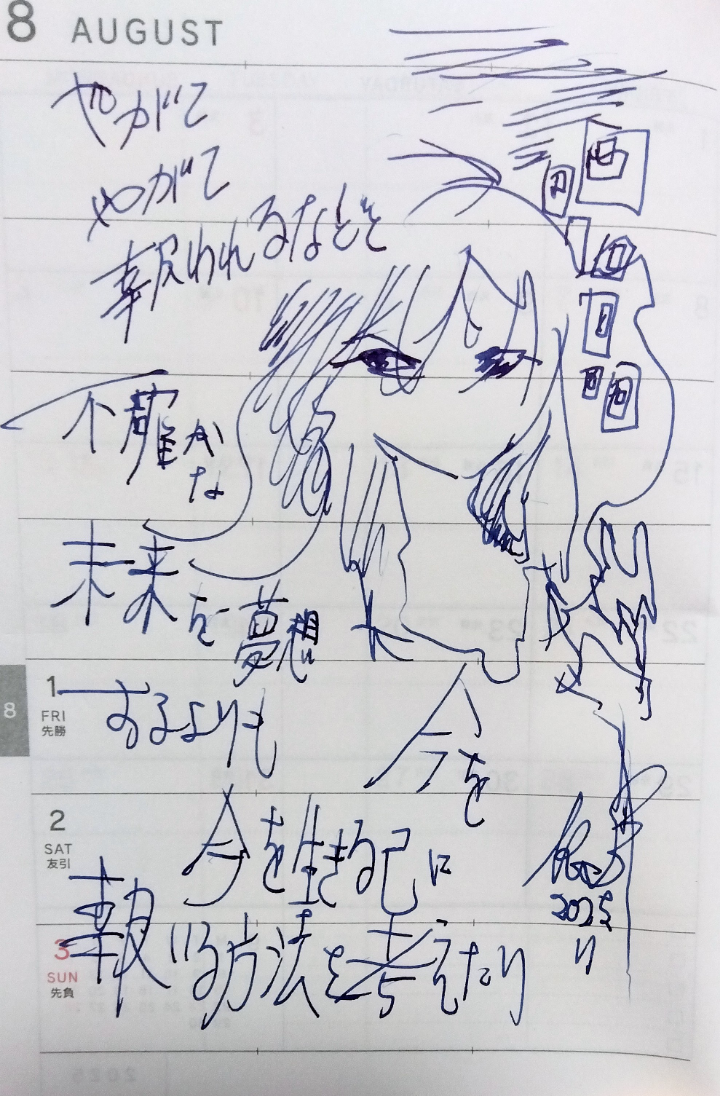 8 AUGUST
やがて
やがて
報われるなどと
不確かな
未来を夢想に
するよりも
今を
今を生きる己に
報いる方法を考えたり
1
FRI
先勝
2
SAT
友引
3
SUN
先負
8
2025
11